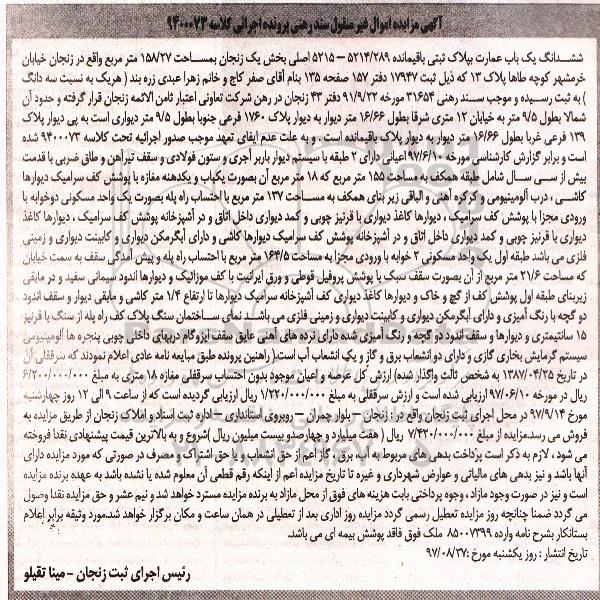 آگهی مزایده اموال غیر منقول سند رهنی پرونده اجرائی کلاسه ۹۴۰۰۰۷۳
ششدانگ یک باب عمارت بپلاک ثبتی باقیمانده ۵۲۱۴/۲۸۹ – ۵۲۱۵ اصلی بخش یک زنجان بمساحت ۱۵۸/۲۷ متر مربع واقع در زنجان خیابان
خرمشهر کوچه طاها پلاک ۱۳ که ذیل ثبت ۱۷۹۴۷ دفتر ۱۵۷ صفحه ۱۳۵ بنام آقای صفر کاج و خانم زهرا عبدی زره بند ( هریک به نسبت سه دانگ
) به ثبت رسیده و موجب سند رهنی ۳۱۶۵۴ مورخه ۹۱/۹/۲۲ دفتر ۴۳ زنجان در رهن شرکت تعاونی اعتبار ثامن الائمه زنجان قرار گرفته و حدود آن
شمالا بطول ۹/۵ متر به خیابان ۱۲ متری شرقا بطول ۱۶/۶۶ متر دیوار به دیوار پلاک ۱۷۶۰ فرعی جنوبا بطول ۹/۵ متر دیواری است به پی دیوار پلاک
۱۳۹ فرعی غربا بطول ۱۶/۶۶ متر دیوار به دیوار پلاک باقیمانده است . و به علت عدم ایفای تعهد موجب صدور اجرائیه تحت کلاسه ۹۴۰۰۰۷۳ شده
است و برابر گزارش کارشناسی مورخه ۹۷/۶/۱۰ اعیانی دارای ۲ طبقه با سیستم دیوار باربر آجری و ستون فولادی و سقف تیرآهن و طاق ضربی با قدمت
بیش از سی سال شامل طبقه همکف به مساحت ۱۵۵ متر مربع که ۱۸ متر مربع آن بصورت یکباب و یکدهنه مغازه با پوشش کف سرامیک دیوارها
کاشی ، درب آلومینیومی و کرکره آهنی و الباقی زیر بنای همکف به مساحت ۱۳۷ متر مربع با احتساب راه پله بصورت یک واحد مسکونی دوخوابه با
ورودی مجزا با پوشش کف سرامیک ، دیوارها کاغذ دیواری با قرنیز چوبی و کمد دیواری داخل اتاق و در آشپزخانه پوشش کف سرامیک ، دیوارها کاغذ
دیواری با قرنیز چوبی و کمد دیواری داخل اتاق و در آشپزخانه پوشش کف سرامیک دیوارها کاشی و دارای آبگرمکن دیواری و کابینت دیواری و زمینی
فلزی می باشد طبقه اول یک واحد مسکونی ۲ خوابه با ورودی مجزا به مساحت ۱۶۴/۵ متر مربع با احتساب راه پله و پیش آمدگی سقف به سمت خیابان
که مساحت ۲۱/۶ متر مربع از آن بصورت سقف سبک با پوشش پروفیل قوطی و ورق ایرانیت با کف موزائیک و دیوارها اندود سیمانی سفید و در مابقی
زیربنای طبقه اول پوشش کف از گچ و خاک و دیوارها کاغذ دیواری کف آشپزخانه سرامیک دیوارها تا ارتفاع ۱/۴ متر کاشی و مابقی دیوار و سقف اندود
دو گچه با رنگ آمیزی و دارای آبگرمکن دیواری و کابینت دیواری و زمینی فلزی می باشد نمای ساختمان سنگ پلاک کف راه پله از سنگ با قرنیز
۱۵ سانتیمتری و دیوارها و سقف اندود دو گچه و رنگ آمیزی شده دارای نرده های آهنی عایق سقف ایزوگام دربهای داخلی چوبی پنجره ها آلومینیومی
سیستم گرمایش بخاری گازی و دارای دو انشعاب برق و گاز و یک انشعاب آب است.( راهنین پرونده طبق مبایعه نامه عادی اعلام نمودند که سرقفلی آن
در تاریخ ۱۳۸۷/۰۴/۲۵ به شخص ثالث واگذار شده) ارزش کل عرصه و اعیان موجود بدون احتساب سرقفلی مغازه ۱۸ متری به مبلغ ۶/۲۰۰/۰۰۰/۰۰۰
ریال در مورخه ۹۷/۰۶/۱۰ ارزیابی شده است و ارزش سرقفلی به مبلغ ۱/۲۲۰/۰۰۰/۰۰۰ ریال ارزیابی گردیده است که از ساعت ۹ الی ۱۲ روز چهارشنبه
مورخ ۹۷/۹/۱۴ در محل اجرای ثبت زنجان واقع در : زنجان – بلوار چمران – روبروی استانداری – اداره ثبت اسناد و املاک زنجان از طریق مزایده به
فروش می رسد.مزایده از مبلغ ۷/۴۲۰/۰۰۰/۰۰۰ ریال ( هفت میلیارد و چهارصدو بیست میلیون ریال )شروع و به بالاترین قیمت پیشنهادی نقدا فروخته
می شود . لازم به ذکر است پرداخت بدهی های مربوط به آب ، برق ، گاز اعم از حق انشعاب و یا حق اشتراک و مصرف در صورتی که مورد مزایده دارای
آنها باشد و نیز بدهی های مالیاتی و عوارض شهرداری و غیره تا تاریخ مزایده اعم از اینکه رقم قطعی آن معلوم شده یا نشده باشد به عهده برنده مزایده
است و نیز در صورت وجود مازاد ، وجوه پرداختی بابت هزینه های فوق از محل مازاد به برنده مزایده مسترد خواهد شد و نیم عشر و حق مزایده نقدا وصول
می گردد ضمنا چنانچه روز مزایده تعطیل رسمی گردد مزایده روز اداری بعد از تعطیلی در همان ساعت و مکان برگزار خواهد شدمورد وثیقه برابر اعلام
بستانکار بشرح نامه وارده ۸۵۰۰۷۳۹۹ ملک فوق فاقد پوشش بیمه ای می باشد.
تاریخ انتشار : روز یکشنبه مورخ :۹۷/۰۸/۲۷
رئیس اجرای ثبت زنجان – مینا تقیلو